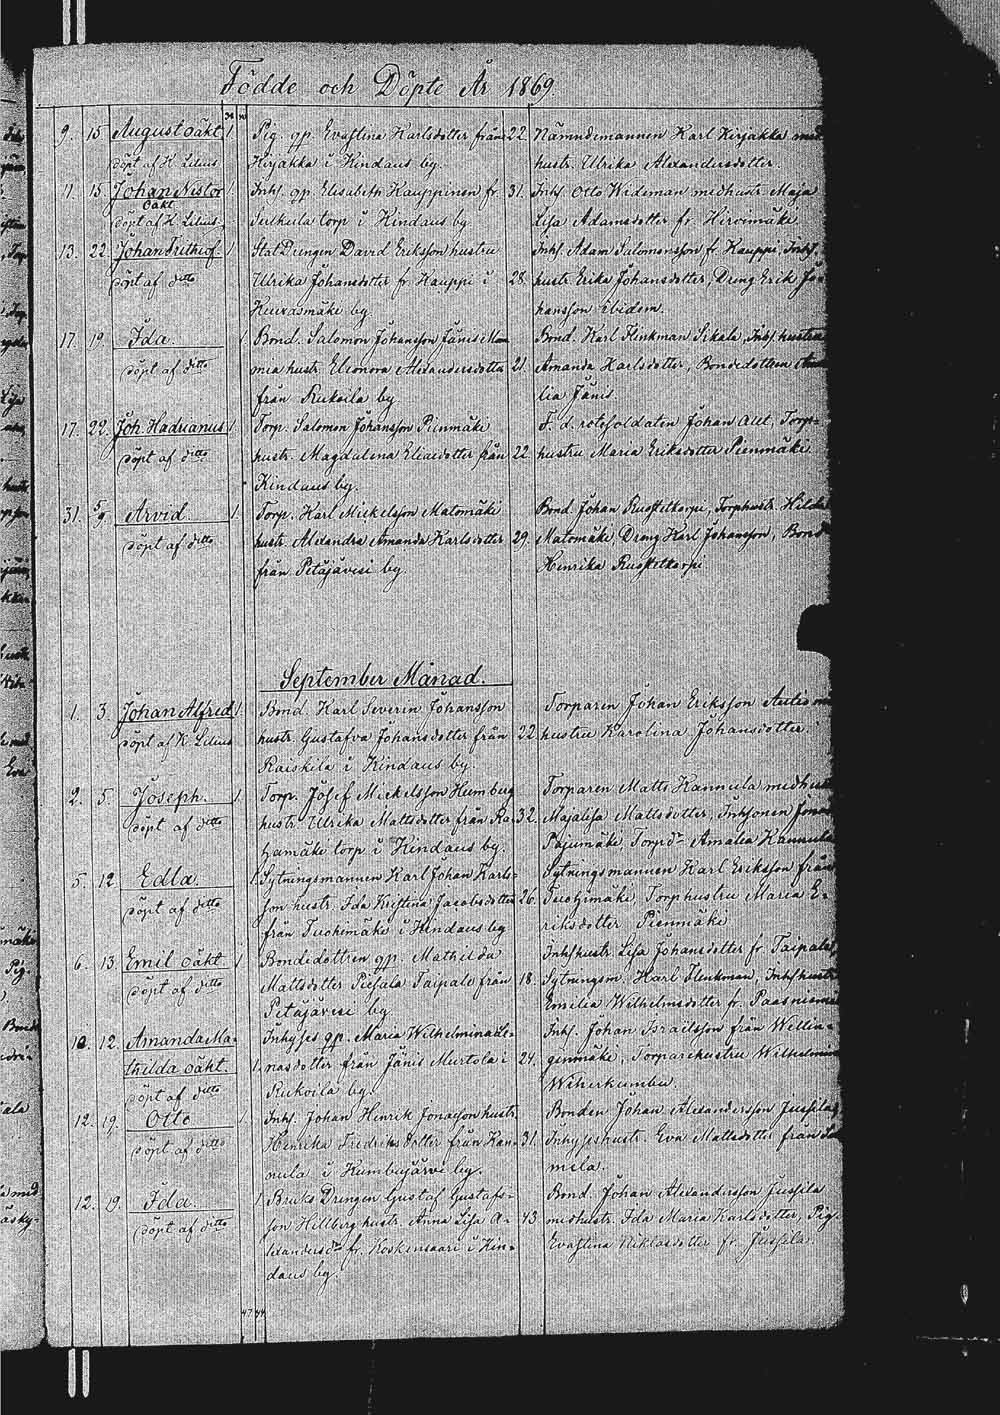 Födde och Döpte År 1869
9. 15 August oäkt 1 Pig. qp. Eva Stina Karlsdotter från 22 Nämndemannen Karl Hirjakka med
döpt af K Lilius Hirjakka i Kindaus by. hustr. Ulrika Alexandersdotter.
11. 15 Johan Nestor 1. Inhs. qp Elisabeth Kauppinen fr. 31. Inhs. Otto Wideman med hustr. Maja
oäkt
döpt af K. Lilius torp i Kindaus by Lisa Adamsdotter fr. Hirvimäki
13. 22. Johan Frithiof. 1 Stat Drengen David Eriksson hustru Inhs. Adam Salomonsson fr Kauppi, Inhs.
döpt af ditto Ulrika Johansdotter fr Kauppi i 28. hustr. Erika Johansdotter, Dreng Erik Jo-
by hansson ibidem.
17. 19. Ida. 1. Bond. Salomon Johansson Jänis Man- Bond. Karl Flinkman Sikala, Inhs. hustru
döpt af ditto nia hustr. Eleonora Alexandersdotter 21. Amanda Karlsdotter, Bondedottren Ama-
från Rukoila by lia Jänis.
17. 22. Joh. Hadrianus 1 Torp. Salomon Johansson Pienmäki F. d. rotesoldaten Johan Allt, Torp-
döpt af ditto hustr. Magdalena Eliaedotter från 22 hustru Maria Eriksdotter Pienmäki.
Kindaus by.
31. 5/9. Arvid. 1. Torp. Karl Mickelsson Matomäki Bond. Johan Ruskeekorpi, Torphustr. Hilda
döpt af ditto hustr. Alexandra Amanda Karlsdotter 29. Matomäki, Dreng Karl Johansson, Bond
från Petäjävesi by Henrika
September Månad.
1. 3. Johan Alfred 1. Bond. Karl Severin Johansson Torparen Johan Eriksson
döpt af K Lilius hustr Gustafva Johansdotter från 22. hustru Karolina Johansdotter
Raiskila i Kindaus by.
2. 5. Joseph. 1. Torp. Josef Mickelsson Humberg Torparen Matts Kannula med hustr
döpt af ditto hustr. Ulrika Mattsdotter från Ra- 32. Maja Lisa Mattsdotter, Inhysonen
hamäki torp i Kindaus by. Pajumäki, Torpdr Amalia Kannula
5. 12 Edla. 1. Sytningsmannen Karl Johan Karls- Sytningsmannen Karl Eriksson från
döpt af ditto son hustr. Ida Kristina Jacobsdotter 26. Tuohimäki, Torphustru Maria E-
från Tuohimäki i Kindaus by riksdotter Pienmäki
6. 13 Emil oäkt 1 Bondedottren qp. Mathilda Inhs hustr. Lisa Johansdotter fr Taipale
döpt af ditto Mattsdotter Taipale från 18. Sytningsm. Karl Flinkman, Inhs hustr
Petäjävesi by Emilia Wilhelmsdotter fr.
10. 12. Amanda Ma- Inhyses qp. Maria Wilhelmina Inhs. Johan Israelsson från Wellin-
thilda oäkt. 1. nasdotter från Jänis Murtola i 24. genmäki, Torparehustru Wilhelmina
döpt af ditto Rukoila by. Wiherkumbu.
12. 19. Otto 1. Inhs. Johan Henrik Jonasson hustr. Bonden Johan Alexandersson Jussila,
döpt af ditto Henrika Fredriksdotter från Kan- 31. Inhyses hustr. Eva Mattsdotter från
nula i Kumbujärvi by. mela.
12. 19. Ida. 1 Bruks Drengen Gustaf Gustafs- Bond. Johan Alexandersson Jussila
döpt af ditto son Hillberg hustr. Anna Lisa A- 43. med hustr. Ida Maria Karlsdotter, Pig.
lexandersdr fr. Koskensaari i Kin- Eva Stina Niklasdotter fr. Jussila.
daus by.
47 44